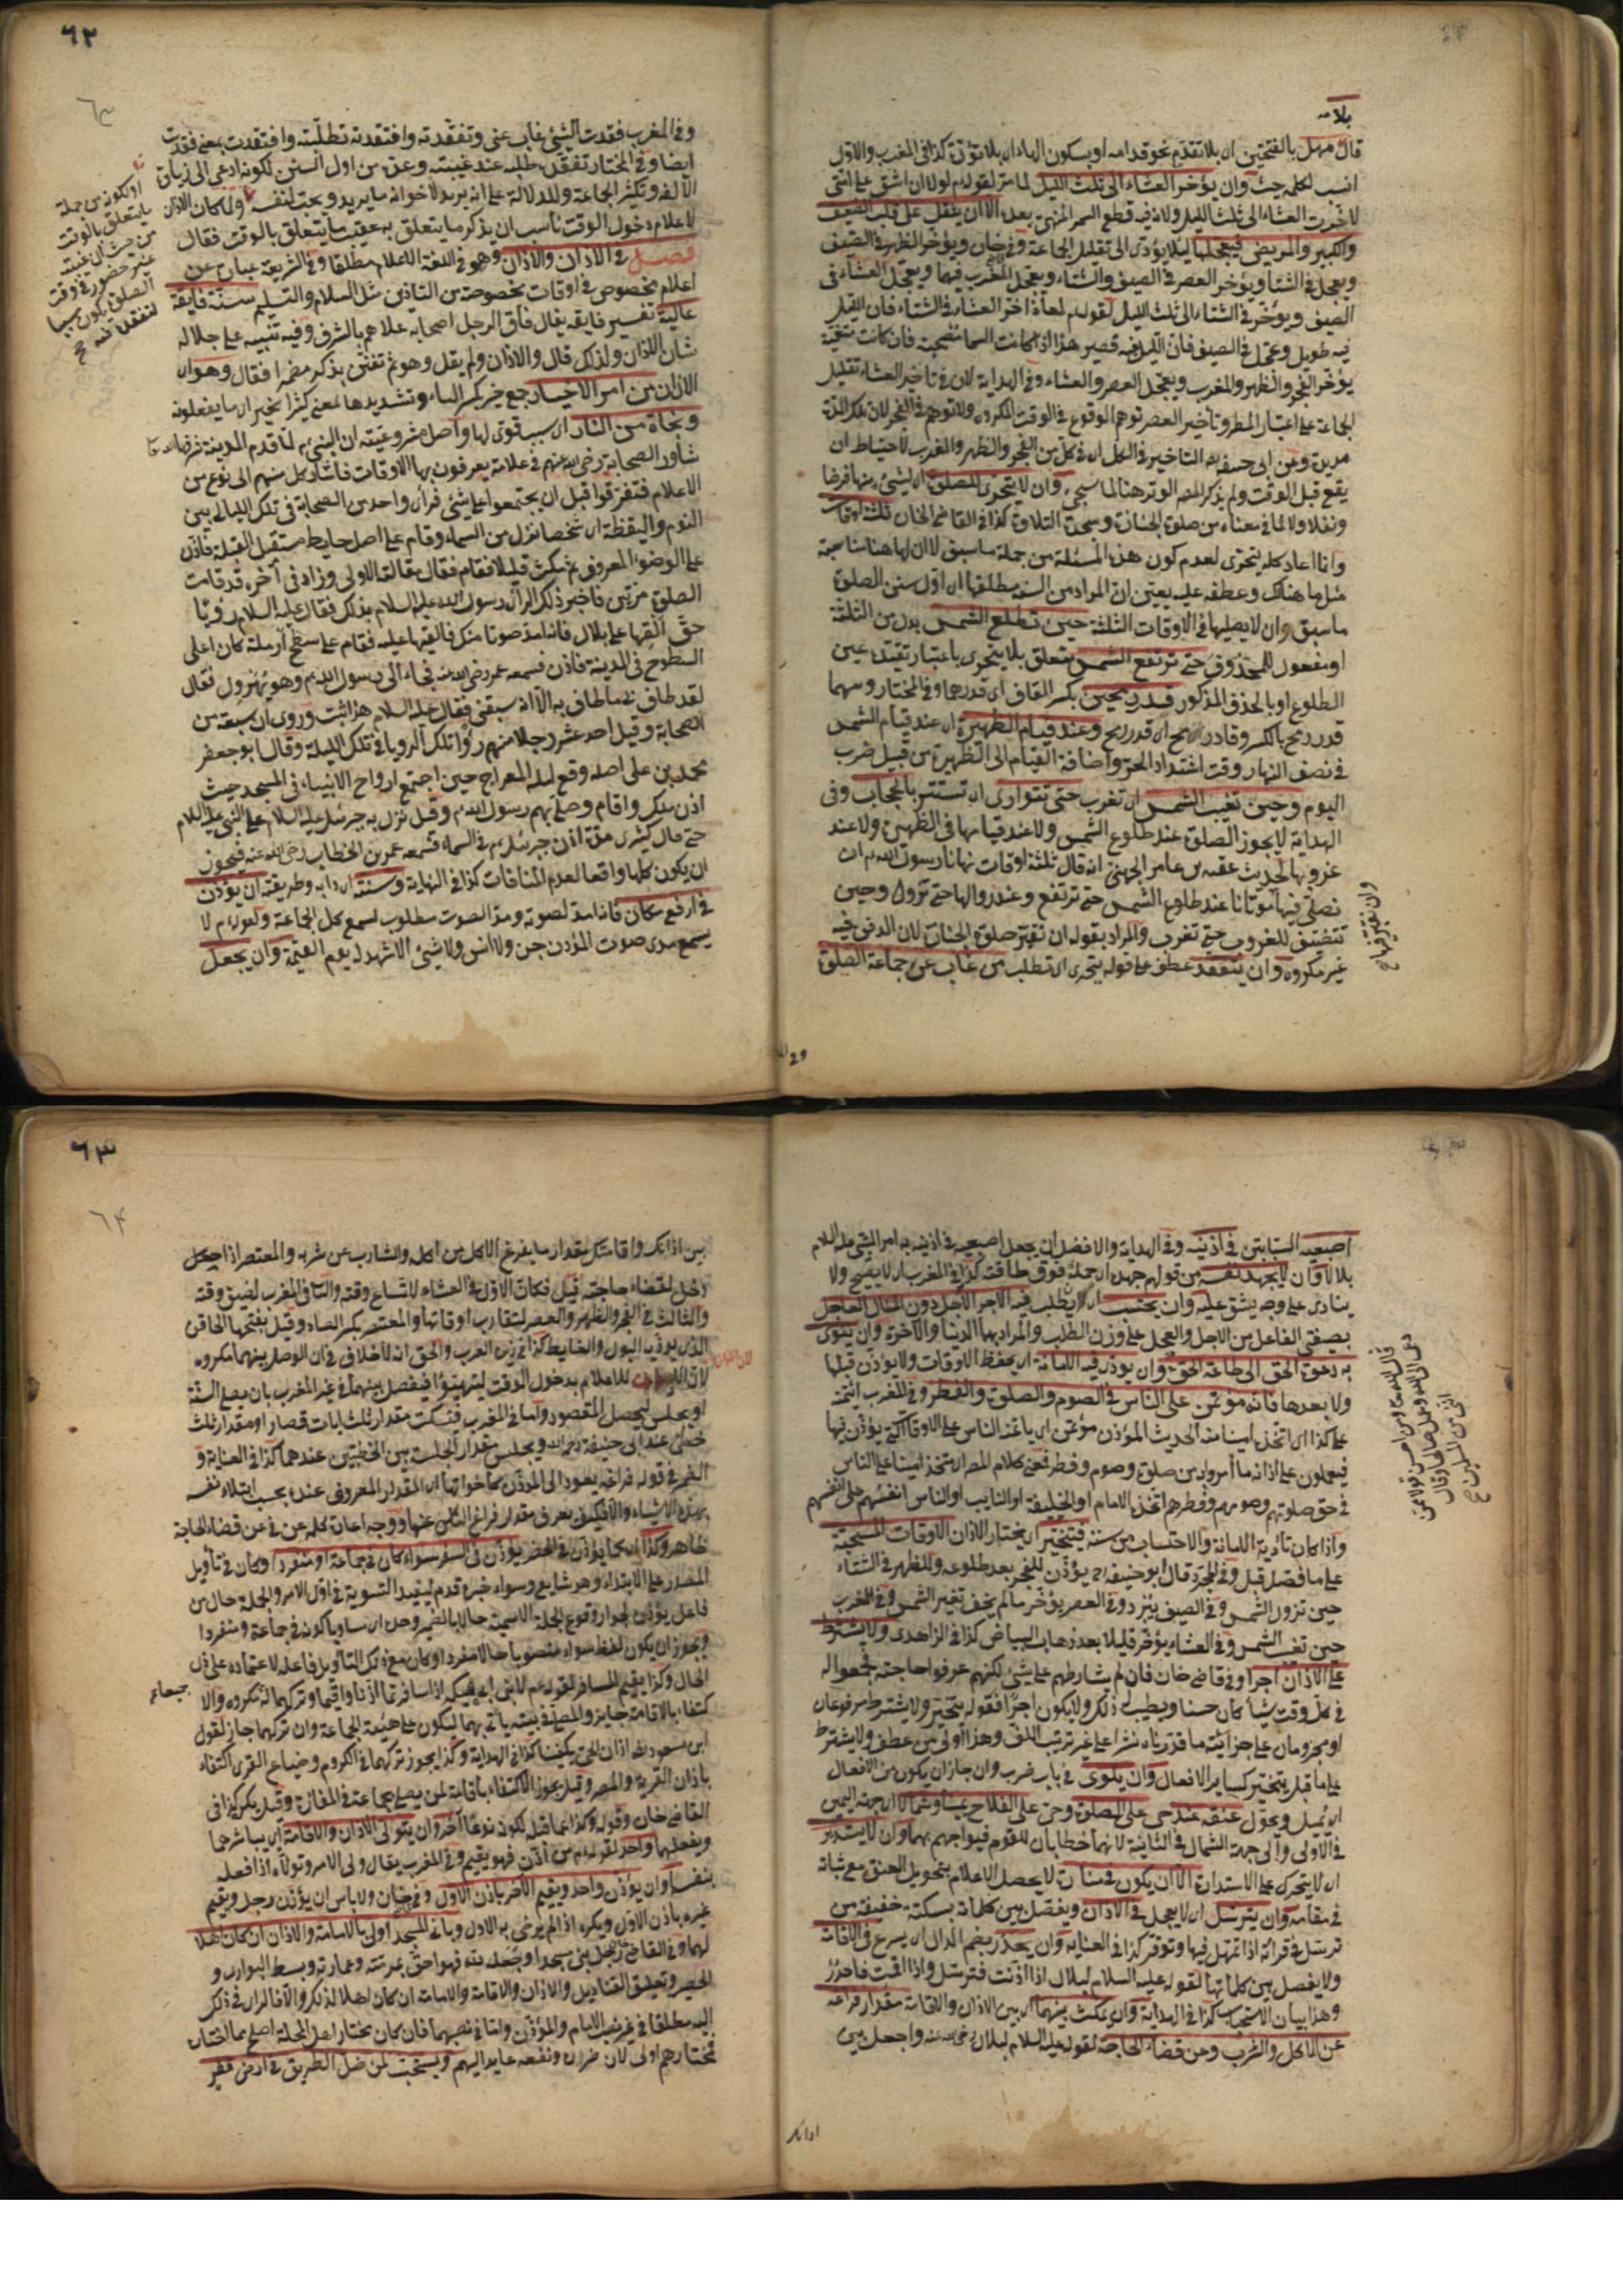 بلا مهـ
قال مهل بالفتحتين اى بلا تقدم نحو قدامه او بسكون الهاء اى بلا تؤدة كذا فى المغرب والاول
انسب لكلمة حيث وان يؤخر العشاء الى ثلث الليل لما مر لقوله م لولا ان اشق على امتى
لاخرت العشاء الى ثلث الليل ولان فيه قطع السمر المنهى بعده الا ان يثقل على قلب الضعيف
والكبير والمريض فيعجلها لئلا يؤدى الى تقليل الجماعة وفى خان ويؤخر الظهر فى الصيف
ويعجل فى الشتاء ويؤخر العصر فى الصيف والشتاء ويعجل المغرب فيهما ويعجل العشاء فى
الصيف ويؤخر فى الشتاء الى ثلث الليل لقوله م لمعاذ اخر العشاء فى الشتاء فان الليل
فيه طويل وعجل فى الصيف فان الليل فيه قصير هذا اذا كانت السماء مصحية فان كانت متغيمة
يؤخر الفجر والظهر والمغرب ويعجل العصر والعشاء وفى الهداية لان فى تاخير العشاء تقليل
الجماعة على اعتبار المطر وتأخير العصر توهم الوقوع فى الوقت المكروه ولا توهم فى الفجر لان تلك المدة
مديدة وعن ابى حنيفة رح التاخير فى الكل اى فى كل من الفجر والظهر والمغرب لاحتياط ان
يقع قبل الوقت ولم يذكر المصر الوتر هنا لما سيجئ وان لا يتحرى للصلوة اى لشئ منها فرضا
ونفلا ولا لما فى معناه من صلوة الجنازة وسجدة التلاوة كذا فى القاضى الخان ثلثة اوقات
وانما اعاد كلمة يتحرى لعدم كون هذه المسئلة من جملة ما سبق لا ان لها هنا مناسبة
مثل ما هناك وعطفه عليه يعين ان المراد من السنة مطلقها اى اول سنن الصلوة
ما سبق وان لا يصليها فى الاوقات الثلثة حين تطلع الشمس بدل من الثلثة
او مفعول للمحذوف حتى ترتفع الشمس يتعلق بلا يتحرى باعتبار تقيده عين
الطلوع او بالحذف المذكور قدر رمحين بكسر القاف اى قدرهما وفى المختار وسهما
قدر رمح بالكسر وقاد رمح اى قدر رمح وعند قيام الظهيرة اى عند قيام الشمس
فى نصف النهار وقت اشتداد الحر واضافة القيام الى الظهيرة من قبيل ضرب
اليوم وحين تغيب الشمس اى تغرب حتى تتوارى اى تستتر بالحجاب وفى
الهداية لا يجوز الصلوة عند طلوع الشمس ولا عند قيامها فى الظهيرة ولا عند
غروبها لحديث عقبة بن عامر الجهنى انه قال ثلثة اوقات نهانا رسول الله م ان
نصلى فيها موتانا عند طلوع الشمس حتى ترتفع وعند زوالها حتى تزول وحين
تتضيف للغروب حتى تغرب والمراد بقوله ان نقبر صلوة الجنازة لان الدفن فيه
غير مكروه وان يتفقد عطف على قوله يتحرى اى تطلب من غاب عن جماعة الصلوة
وان نقبر فيها
٦٢
وفى المغرب فقدت الشئ غاب عنى وتفقدته وافتقدته تطلبته وافتقدت بمعنى فقدت
ايضا وفى المختار تفقده طلبه عند غيبته وعده من اول السنن لكونه ادعى الى زيادة
الالفة وتكثير الجماعة والدلالة على انه يريد لاخوانه ما يريد ويحب لنفسه ولما كان الاذان
لاعلام دخول الوقت ناسب ان يذكر ما يتعلق به عقيب ما يتعلق بالوقت فقال
فصل فى الاذان والاذان وهو فى اللغة الاعلام مطلقا وفى الشريعة عبارة عن
اعلام مخصوص فى اوقات مخصوصة من التاذين مثل السلام والتسليم سنة فايقة
عالية تفسير فايقة يقال فاق الرجل اصحابه علاهم بالشرف وفيه تنبيه على جلالة
شان الاذان ولذلك قال والاذان ولم يقل وهو ثم تفنن بذكره مضمرا فقال وهو اى
الاذان من امر الاخيار جمع خير بكسر الياء وتشديدها لمعنى كثير الخير اى ما يفعلونه
ونجاة من النار اى سبب قوى لها واصل مشروعيته ان النبى م لما قدم المدينة
شاور الصحابة رضى الله عنهم فى علامة يعرفون بها الاوقات فاشار كل منهم الى نوع من
الاعلام فتفرقوا قبل ان يجتمعوا على شئ فرأى واحد من الصحابة فى تلك الليالى بين
النوم واليقظة ان شخصا نزل من السماء وقام على اصل حايط مستقبل القبلة فاذن
على الوضوء المعروف ثم مكث قليلا فقام فقال مقالته الاولى وزاد فى آخره قد قامت
الصلوة مرتين فاخبر ذلك الرائى رسول الله عليه السلام بذلك فقال عليه السلام رؤيا
حق القها على بلال فانه امد صوتا منك فالقيتها عليه فقام على سطح ارملة كان اعلى
السطوح فى المدينة فاذن فسمعه عمر رضى الله عنه فجاء الى رسول الله م وهو يهرول فقال
لقد طاف بى ما طاف به الا انه سبقنى فقال عليه السلام هذا اثبت وروى ان سبعة من
الصحابة وقيل احد عشر رجلا منهم رأوا تلك الرويا فى تلك الليلة وقال ابو جعفر
محمد بن على اصله وقع ليلة المعراج حين اجتمع ارواح الانبياء فى المسجد حيث
اذن ملك واقام وصلى بهم رسول الله م وقيل نزل به جبرئيل عليه السلام على النبى عليه السلام
حتى قال كثير بن مرة اذن جبرئيل م فى السماء فسمعه عمر بن الخطاب رضى الله عنه فيجوز
ان يكون كلها واقعا لعدم المنافات كذا فى النهاية وسنته اى دابه وطريقته ان يؤذن
فى ارفع مكان فانه امد لصوته ومد الصوت مطلوب ليسمع كل الجماعة ولقوله م لا
يسمع مدى صوت المؤذن جن ولا انس ولا شئ الا شهد له يوم القيمة وان يجعل
او لكونه من جملة
ما يتعلق بالوقت
من حيث ان غيبته
عند حضور فى وقت
الصلوة يكون سببا
لتفقده
اصبعيه السبابتين فى اذنيه وفى الهداية والافضل ان يجعل اصبعيه فى اذنيه به امر النبى عليه السلام
بلالا وان لا يجهد نفسه من قولهم جهده اى حمله فوق طاقته كذا فى المغرب اى لا يصيح ولا
ينادى على وجه يشق عليه وان يحتسب اى يطلب فيه الاجر الآجل دون المنال العاجل
بصيغتى الفاعل من الاجل والعجل على وزن الطلب والمراد بهما الدنيا والآخرة وان ينوى
به دعوة الحق الى طاعة الحق وان يؤدى فيه الامانة اى يحفظ الاوقات ولا يؤذن قبلها
ولا بعدها فانه مؤتمن على الناس فى الصوم والصلوة والفطر وفى المغرب ائتمنه
على كذا اى اتخذ امينا منه الحديث المؤذن مؤتمن اى يأتمنه الناس على الاوقات التى يؤذن فيها
فيعملون على اذانه ما امروا به من صلوة وصوم وفطر فمعنى كلام المصر اى متخذ امينا على الناس
فى حق صلوتهم وصومهم وفطرهم اتخذه الامام او الخليفة او النايب او الناس انفسهم على انفسهم
واذا كان تأدية الامانة والاحتساب من سنته فيتخير اى يختار الاذان الاوقات المستحبة
على ما فصل قبل وفى المجرد قال ابو حنيفة رح يؤذن للفجر بعد طلوعه وللظهر فى الشتاء
حين تزول الشمس وفى الصيف يبرد وفى العصر يؤخر ما لم يخف تغير الشمس وفى المغرب
حين تغيب الشمس وفى العشاء يؤخر قليلا بعد ذهاب البياض كذا فى الزاهدى ولا يشترط
على الاذان اجرا وفى قاضى خان فان لم يشارطهم على شئ لكنهم عرفوا حاجته فجمعوا له
فى كل وقت شيئا كان حسنا ويطيب له ذلك ولا يكون اجرا فقوله يتخير ولا يشترط مرفوعان
او مجزومان على جزائية ما قدرناه نشرا على غير ترتيب اللف وهذا اولى من عطف ولا يشترط
على ما قبل يتخير كسائر الافعال وان يلوى فى باب ضرب وان جاز ان يكون من الافعال
اى يميل ويحول عنقه عند حى على الصلوة وحى على الفلاح يمينا وشمالا اى جهة اليمين
فى الاولى والى جهة الشمال فى الثانية لانهما خطابان للقوم فيواجههم بهما وان لا يستدير
اى لا يتحرك على الاستدارة الا ان يكون فى منارة لا يحصل الاعلام بتحويل العنق مع ثباته
فى مقامه وان يترسل اى لا يعجل فى الاذان ويفصل بين كلماته بسكتة خفيفة من
ترسل فى قرائة اذا تمهل فيها وتوقر كذا فى العناية وان يحدر بضم الدال اى يسرع فى الاقامة
ولا يفصل بين كلماتها لقوله عليه السلام لبلال اذا اذنت فترسل واذا اقمت فاحدر
وهذا بيان الاستحباب كذا فى الهداية وان يمكث بينهما اى بين الاذان والاقامة مقدار فراغه
عن الاكل والشرب وعن قضاء الحاجة لقوله عليه السلام لبلال رضى الله عنه واجعل بين
قال الله تعالى ومن احسن قولا ممن
دعى الى الله وعمل صالحا وقال
اننى من المسلمين
٦٣
٦٤
بين اذانك واقامتك مقدار ما يفرغ الاكل من اكله والشارب عن شربه والمعتصر اذا
دخل لقضاء حاجته قيل فكان الاول فى العشاء لاتساع وقته والثانى فى المغرب لضيق وقته
والثالث فى الفجر والظهر والعصر لتقارب اوقاتها والمعتصر بكسر الصاد وقيل بفتحها الحاقن
الذى يؤذيه البول والغايط كذا فى المغرب والحق انه لا خلاف فى ان الوصل بينهما مكروه
للاعلام بدخول الوقت ليتهيئوا فيفصل بينهما فى غير المغرب بان يصلى السنة
او يجلس ليحصل المقصود واما فى المغرب فيسكت مقدار ثلث ايات قصار او مقدار ثلث
خطى عند ابى حنيفة رحمه الله ويجلس مقدار الجلسة بين الخطبتين عندهما كذا فى العناية و
الضمير فى قوله فراغه يعود الى المؤذن كأخواتها اى المقدار المعروف عنده بحسب ابتلاء نفسه
بهذه الاشياء والا فكيف يعرف مقدار فراغ الناس عنها ووجه اعادة كلمة عن فى عن قضاء الحاجة
ظاهر وكذا اى كما يؤذن فى الحضر يؤذن فى السفر سواء كان فى جماعة او منفردا وكان فى تأويل
المصدر على الابتداء وهو شايع وسواء خبره قدم ليفيد التسوية فى اول الامر والجملة حال من
فاعل يؤذن لجواز وقوع الجملة الاسمية حالا بالضمير وحده اى مساويا كونه فى جماعة ومنفردا
ويجوز ان يكون لفظ سواء منصوبا حالا مفردا وكان مع ذلك التأويل فاعله لاعتماده على ذى
الحال وكذا يقيم المسافر لقوله م لابنى ابى مليكة اذا سافرتما اذنا واقيما وتركهما له مكروه والا
كتفاء بالاقامة جايز والمصلى فى بيته يأتى بهما ليكون على هيئة الجماعة وان تركهما جاز لقول
ابن مسعود رضه اذان الحى يكفينا كذا فى الهداية وكذا يجوز تركهما فى الكروم وضياع القرى اكتفاء
باذان القرية والمصر وقيل يجوز الاكتفاء باقامة لمن يصلى بجماعة فى المفازة وقيل يكره كذا فى
القاضى خان وقوله وكذا عما قبل لكونه نوعا آخر وان يتولى الاذان والاقامة اى يباشرهما
ويفعلهما واحد لقوله م من اذن فهو يقيم وفى المغرب يقال ولى الامر وتولاه اذا فعله
بنفسه او ان يؤذن واحد ويقيم الآخر باذن الاول وفى خان ولا باس ان يؤذن رجل ويقيم
غيره باذن الاول ويكره اذا لم يرض به الاول وبانى المسجد اولى بالامامة والاذان ان كان اهلا
لهما وفى القاضى رجل بنى مسجدا وجعله لله فهو احق بمرمته وعمارته وبسط البوارى و
الحصير وتعليق القناديل والاذان والاقامة والامامة ان كان اهلا لذلك والا فالراى فى ذلك
اليه مطلقا فى غير نصب الامام والمؤذن واما فى نصبهما فان كان مختار اهل المحلة اصلح مما اختاره
فمختارهم اولى لان ضرره ونفعه عايد اليهم ويستحب لمن ضل الطريق فى ارض قفر
جماعة